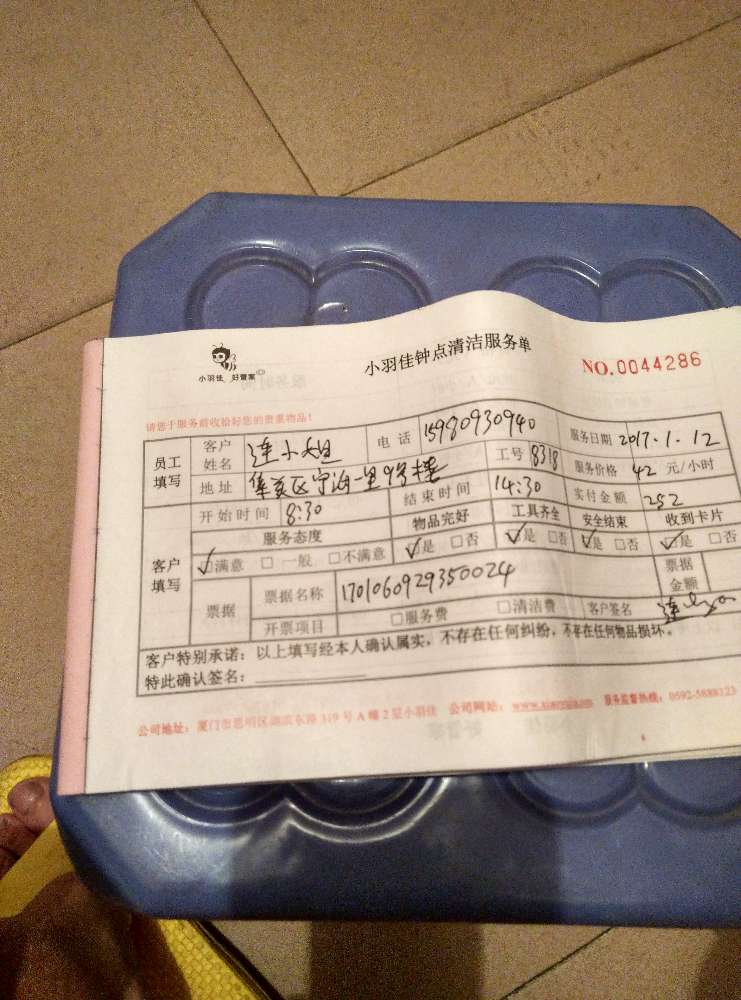 小羽佳 好管家
小羽佳钟点清洁服务单
NO.0044286
请您于服务前收拾好您的贵重物品!
员工填写 客户姓名 连小姐 电话 15980930940 服务日期 2017.1.12
地址 集美区宁海一里9号楼 工号 8318 服务价格 42 元/小时
开始时间 8:30 结束时间 14:30 实付金额 252
客户填写 服务态度 物品完好 工具齐全 安全结束 收到卡片
☑满意 □ 一般 □不满意 ☑是 □否 ☑是 □否 ☑是 □否 ☑是 □否
票据 票据名称 1701060929350024 票据金额
开票项目 □服务费 □清洁费 客户签名 连
客户特别承诺:以上填写经本人确认属实,不存在任何纠纷,不存在任何物品损坏。
特此确认签名:
公司地址:厦门市思明区湖滨东路 319 号 A 幢 2 层小羽佳 公司网站: 服务监督热线:0592-5888123